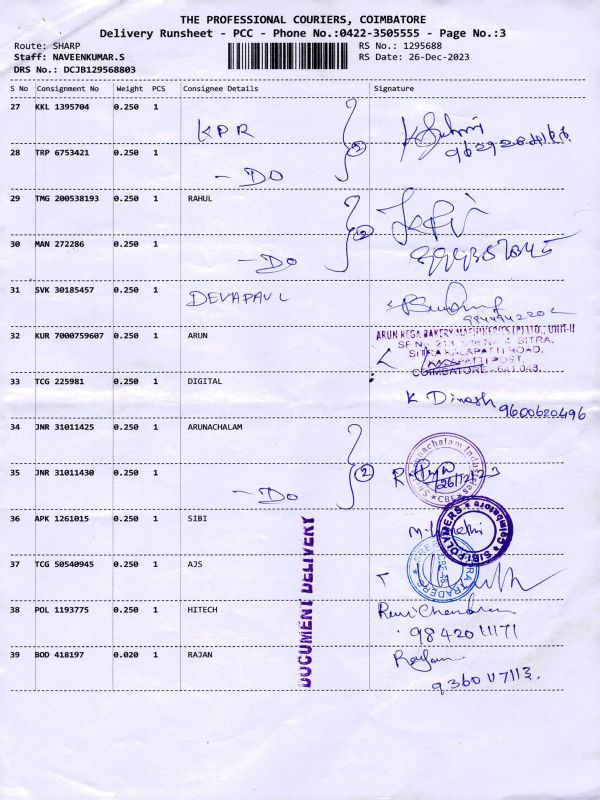 THE PROFESSIONAL COURIERS, COIMBATORE
Delivery Runsheet - PCC - Phone No.:0422-3505555 - Page No.:3
Route: SHARP
RS No.: 1295688
Staff: NAVEENKUMAR.S
RS Date: 26-Dec-2023
DRS No.: DCJB129568803
S No Consignment No Weight PCS Consignee Details Signature
27 KKL 1395704 0.250 1
KPR
28 TRP 6753421 0.250 1
- DO
2
29 TMG 200538193 0.250 1 RAHUL
30 MAN 272286 0.250 1
- DO
2
31 SVK 30185457 0.250 1 DEVAPAUL
9844942202
32 KUR 7000759607 0.250 1 ARUN
ARUN REGA BAKERY MACHINERIES (P) LTD., UNIT-II
SITRA KALAPATTI ROAD,
COIMBATORE - 641 048.
33 TCG 225981 0.250 1 DIGITAL
K Dinash
9600620496
34 JNR 31011425 0.250 1 ARUNACHALAM
35 JNR 31011430 0.250 1
- DO
2
26/12/23
CBE
36 APK 1261015 0.250 1 SIBI
SIBI POLYMERS
Coimbatore
37 TCG 50540945 0.250 1 AJS
TRADERS
DOCUMENT DELIVERY
38 POL 1193775 0.250 1 HITECH
Ravi Chandran
9842011171
39 BOD 418197 0.020 1 RAJAN
Rajan